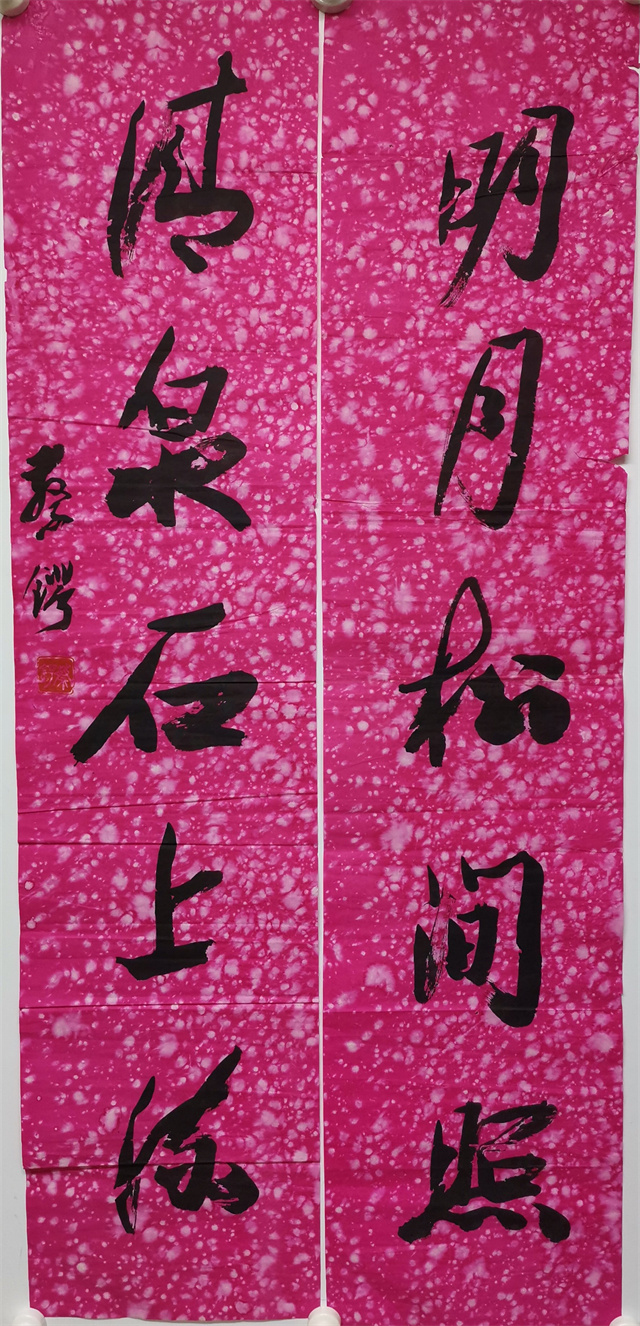 明月松间照
清泉石上流
蔡锷